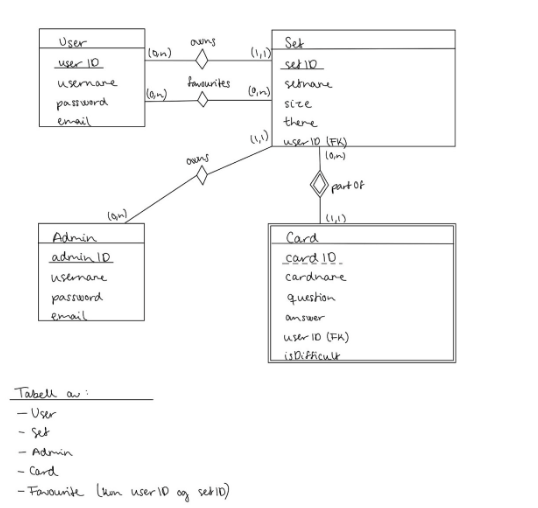 User
user ID
username
password
email
(0,n)
owns
(1,1)
(0,n)
favourites
(0,n)
Set
set ID
setname
size
theme
user ID (FK)
(1,1)
owns
(0,n)
(0,n)
part Of
(1,1)
Admin
admin ID
username
password
email
Card
card ID
cardname
question
answer
user ID (FK)
isDifficult
Tabell av:
- User
- Set
- Admin
- Card
- Favourite (kun user ID og set ID)